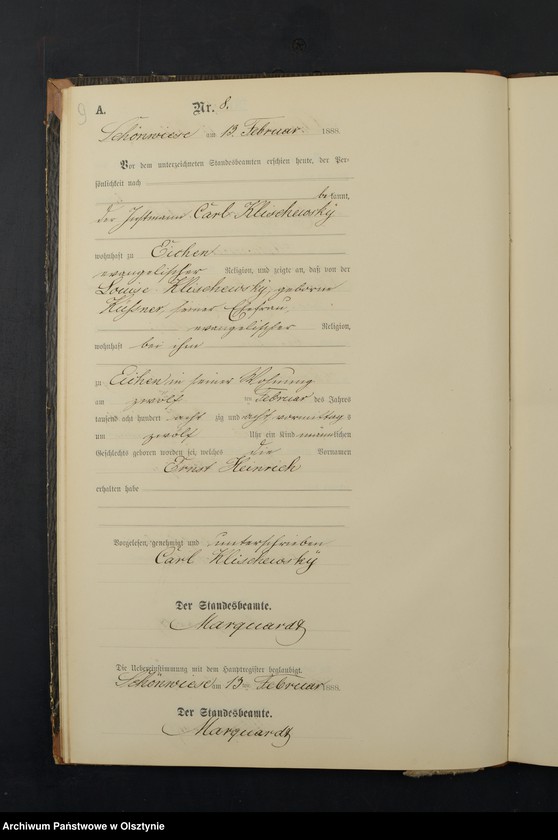 9
A. Nr. 8.
Schönwiese am 13. Februar 1888.
Vor dem unterzeichneten Standesbeamten erschien heute, der Per-
sönlichkeit nach
bekannt,
der Carl Klischewsky
wohnhaft zu Eichen
evangelischer Religion, und zeigte an, daß von der
Louise Klischewsky, geborne
Kußner, seiner Ehefrau,
evangelischer Religion,
wohnhaft bei ihm
zu Eichen in seiner Wohnung
am zwölf ten Februar des Jahres
tausend acht hundert acht zig und acht vormittags
um zwölf Uhr ein Kind männlichen
Geschlechts geboren worden sei, welches die Vornamen
Ernst Heinrich
erhalten habe
Vorgelesen, genehmigt und unterschrieben
Carl Klischewsky
Der Standesbeamte.
Marquardt
Die Uebereinstimmung mit dem Hauptregister beglaubigt.
Schönwiese am 13ten Februar 1888.
Der Standesbeamte.
Marquardt
Archiwum Państwowe w Olsztynie